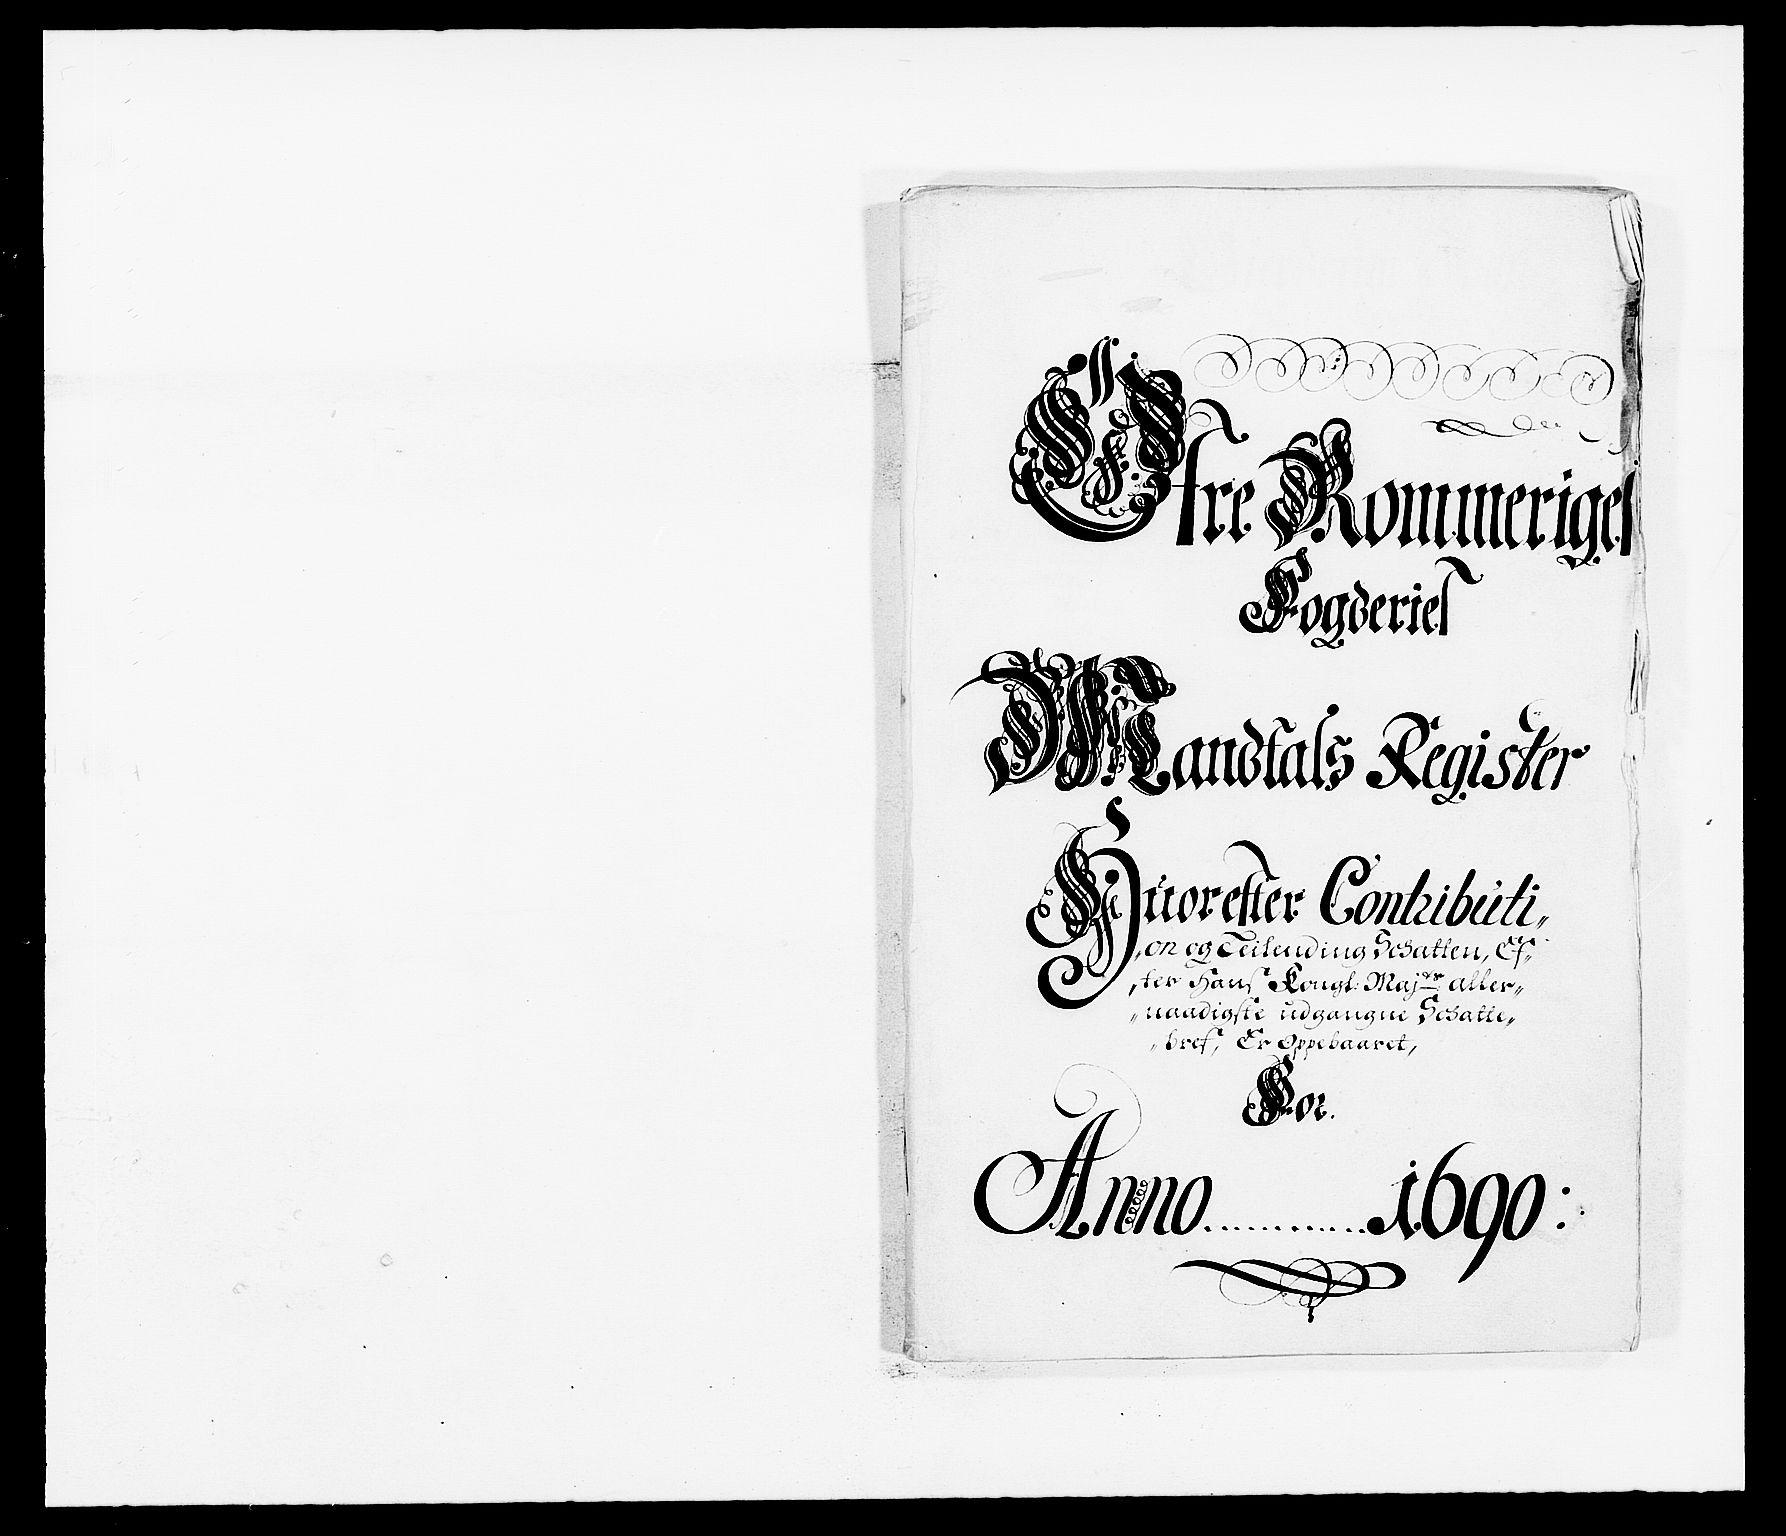 Øfre Rommeriges
Fogderies
Mandtals Register
Huorefter Contributi„
„on og Teilending Schatten, Ef„
„ter Hans Kongl: Maj:ts aller„
„naadigste udgangne Schatte„
„bref, Er Oppebaaret,
For.
Anno............1690: